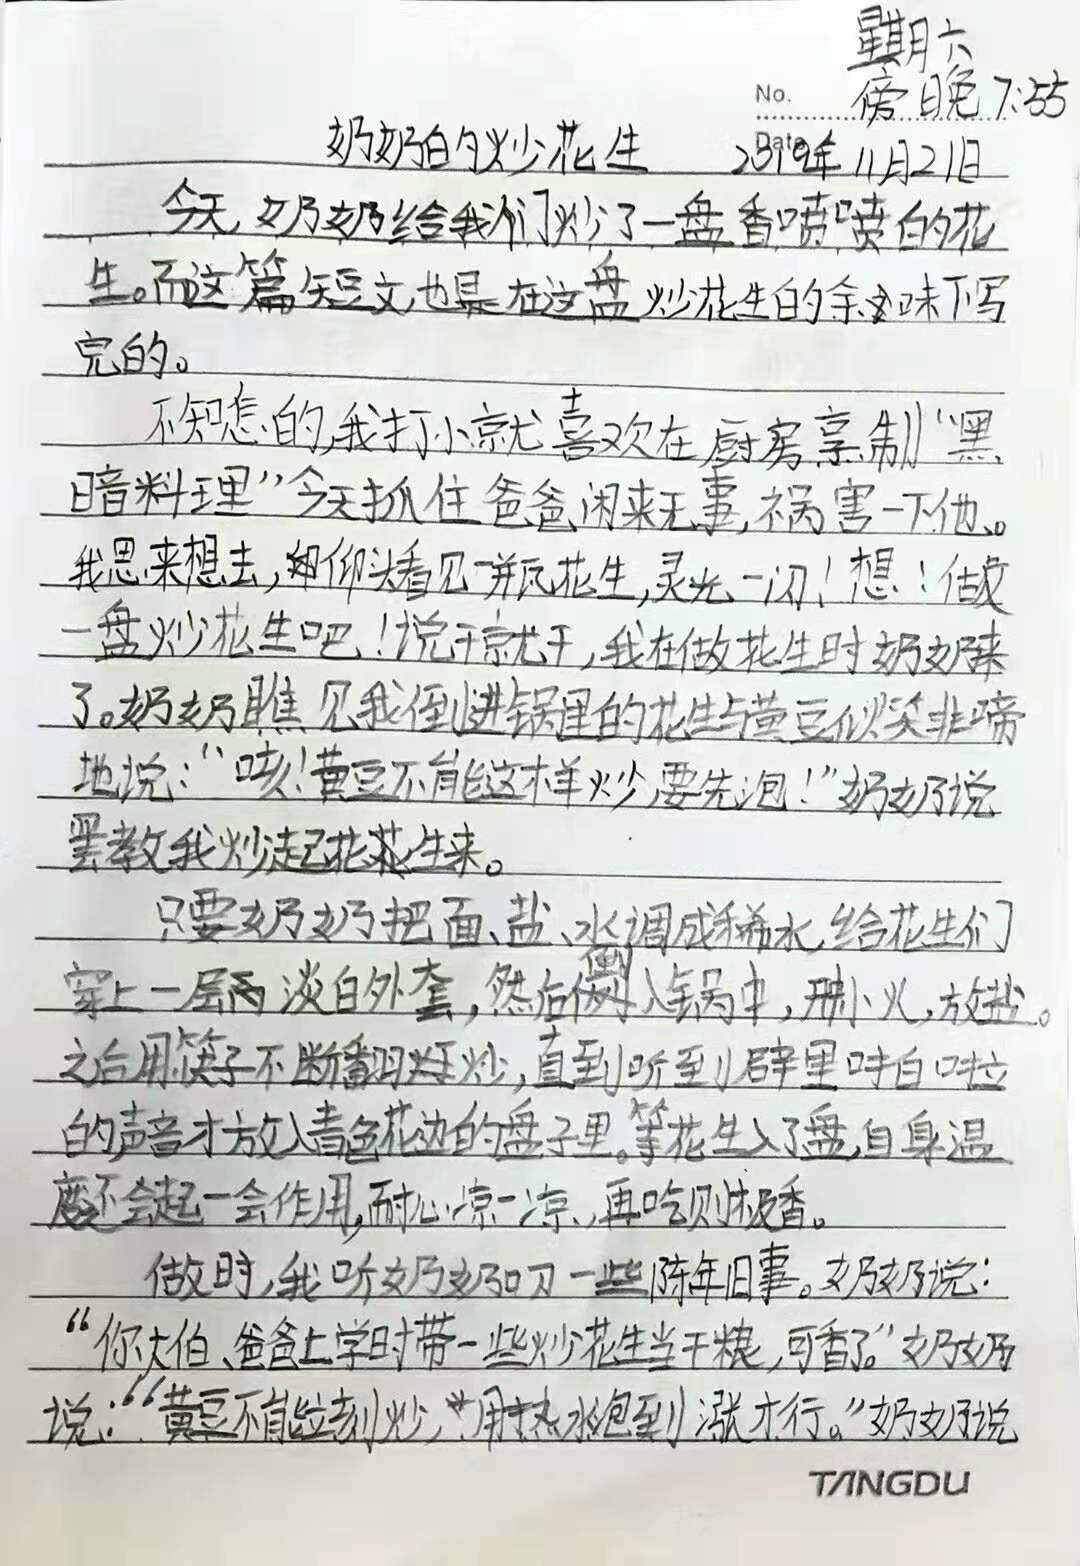 星期六
No.
傍晚 7:55
奶奶的炒花生
Date
年11月21日
今天，奶奶给我们炒了一盘香喷喷的花
生。而这篇短文也是在这盘炒花生的余味下写
完的。
不知怎的，我打小就喜欢在厨房烹制“黑
暗料理”今天抓住爸爸闲来无事，祸害一下他。
我思来想去，仰头看见一瓶花生，灵光一闪！想！做
一盘炒花生吧！说干就干，我在做花生时奶奶来
了。奶奶瞧见我倒进锅里的花生与黄豆似笑非啼
地说：“咳！黄豆不能这样炒，要先泡！”奶奶说
罢教我炒起花生来。
只要奶奶把面、盐、水调成稀水，给花生们
穿上一层淡白外套，然后倒入锅中，小火，放盐。
之后用筷子不断翻炒，直到听到噼里啪啦
的声音才放入青色花边的盘子里。等花生入了盘，自身温
度还会起一会作用，耐心凉一凉，再吃则极香。
做时，我听奶奶叨一些陈年旧事。奶奶说：
“你大伯、爸爸上学时带一些炒花生当干粮，可香了。”奶奶
说：“黄豆不能立刻炒，用热水泡到涨才行。”奶奶说
TANGDU